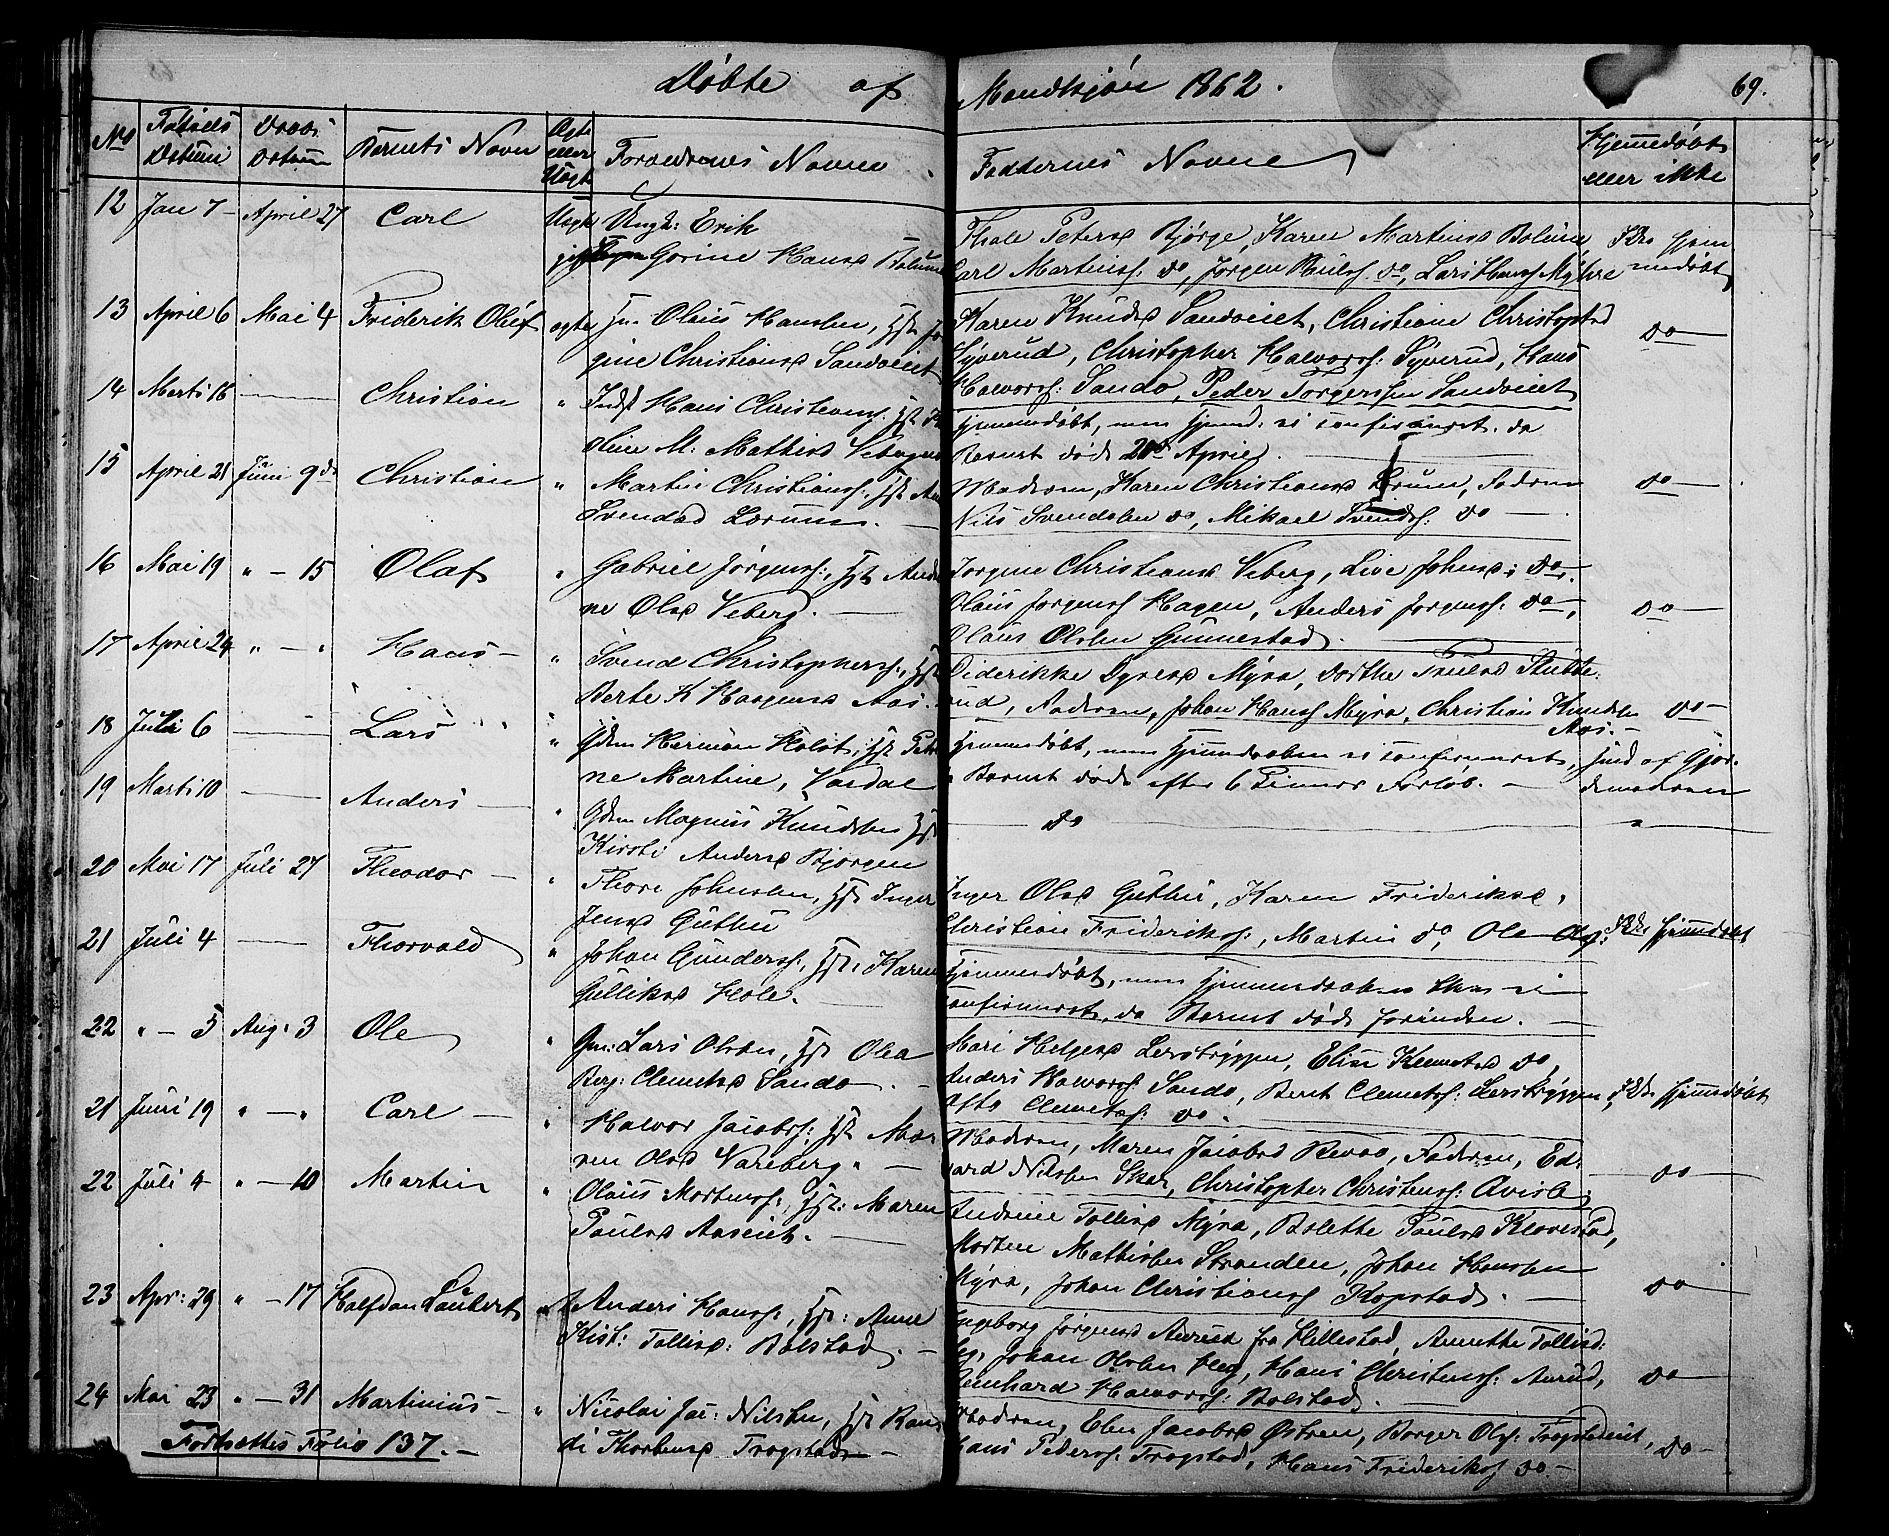 Døbte af Mandkjøn 1862. 69.
No Fødsels Datum Daabs Datum Barnets Navn Ægte eller Uægte Forældrenes Navne Faddernes Navne Hjemmedøbt eller ikke
12 Jan 7 April 27 Carl Uægte Ungk: Erik
Gorine Hansd Bolum
Thale Petersd Bjørge, Karen Martinsd Bolum, Ikke hjem
Carl Martinss: do, Jørgen Paulss. do, Lars Hanss Myhre medøbt
13 April 6 Mai 4 Friderik Oluf ægte Olaus Hansen, Hst Jo
gine Christiansd Sandveiet
Karen Knudsd Sandveiet, Christiane Christophsd
Syverud, Christopher Halvorss: Syverud, Hans do
Halvorss: Sando, Peder Torgersen Sandveiet
14 Marts 16 Christian " Inds Hans Christians, Hst
oline M: Mathisd Veberg
Hjemmedøbt, men Hjemd. ei confirmeret. da
Barnet døde 20de April.
15 April 21 Juni 9de Christian " Martin Christianss: Hst
Svendsd Lorum.
Madren, Karen Christiansd Lorum, Fadren do
Nils Svendsen do, Mikael Svends: do
16 Mai 19 " - 15 Olaf " Gabriel Jørgenss:, Hst And
ne Olsd Veberg.
Jørgine Christiansd Veberg, Live Johnsd: do.
Olaus Jorgenss Hagen, Anders Jorgenss: do, do
Olaus Olsen Gunnestad.
17 April 24 " - " Hans " Svend Christopherss:, Hst
Berte K Haagensd Aas.
Diderikke Dyresd Myra, Dorthe Paulsd Stubbe
rud, Fadren, Johan Hanss Myra, Christian Knudsen Aas. do
18 Juli 6 Lars " Gdm Herman Holst, Hst Pet
ne Martine, Vardal
Hjemmedøbt, men Hjemdaaben ei confirmeret,
Barnet døde efter 6 Timers Forløb. af Gjor
demoderen
19 Marts 10 Anders " Gdm Magnus Knudsen Hst
Kirsti Andersd Bjørgen
do "
20 Mai 17 Juli 27 Theodor " Thore Johnsen, Hst Inger
Jensd Guthu
Inger Olsd Guthu, Karen Frideriksd,
Christian Frideriks:, Martin do, Ole Ols: Ikke hjemmedøbt
21 Juli 4 Thorvald " Johan Gunderss:, Hst: Karen
Gulliksd Hole.
Hjemmedøbt, men Hjemmedaaben ei
confirmeret, da Barnet døde forinden.
22 " - 5 Aug: 3 Ole " Gm: Lars Olsen, Hst Olea
Berg: Clemetsd Sando.
Mari Helgesd Lerstryppen, Elise Klemetsd do,
Anders Halvorss: Sando, Bent Clemets: Lerstryppen, Ikke hjemmedøbt
Clemetss: do.
21 Juni 19 " - " Carl " Halvor Jacobs: Hst Ma
ren Olsd Vareberg.
Madren, Maren Jacobsd Revaa, Fadren, Ed
vard Nilsen Skar, Christopher Christenss: Avisle do
22 Juli 4 " - 10 Martin " Olaus Mortenss:, Hst: Maren
Paulsd Aaseiet.
Andrine Tollisd Myra, Bolette Paulsd Klovestad,
Morten Mathisen Stranden, Johan Hanssen
Myra, Johan Christianss Kopstad. do
23 Apr: 29 " - 17 Halfdan Laubert Anders Hanss:, Hst: Anne
Kist: Tollisd: Bolstad.
Ingeborg Jørgensd Aurud fra Hillestad, Annette Tollisd:
Johan Olsen Heg, Hans Christenss: Aurud, do
Lenhard Halvorss: Bolstad.
24 Mai 23 " - 31 Martinius " Nicolai Jac: Nilsen, Hst Ran
di Thorbensd Trogstad
Madren, Elen Jacobsd Østren, Borger Ols: Trogstadeiet,
Hans Pederss: Trogstad, Hans Frideriks do do
Fortsættes Folio 137.